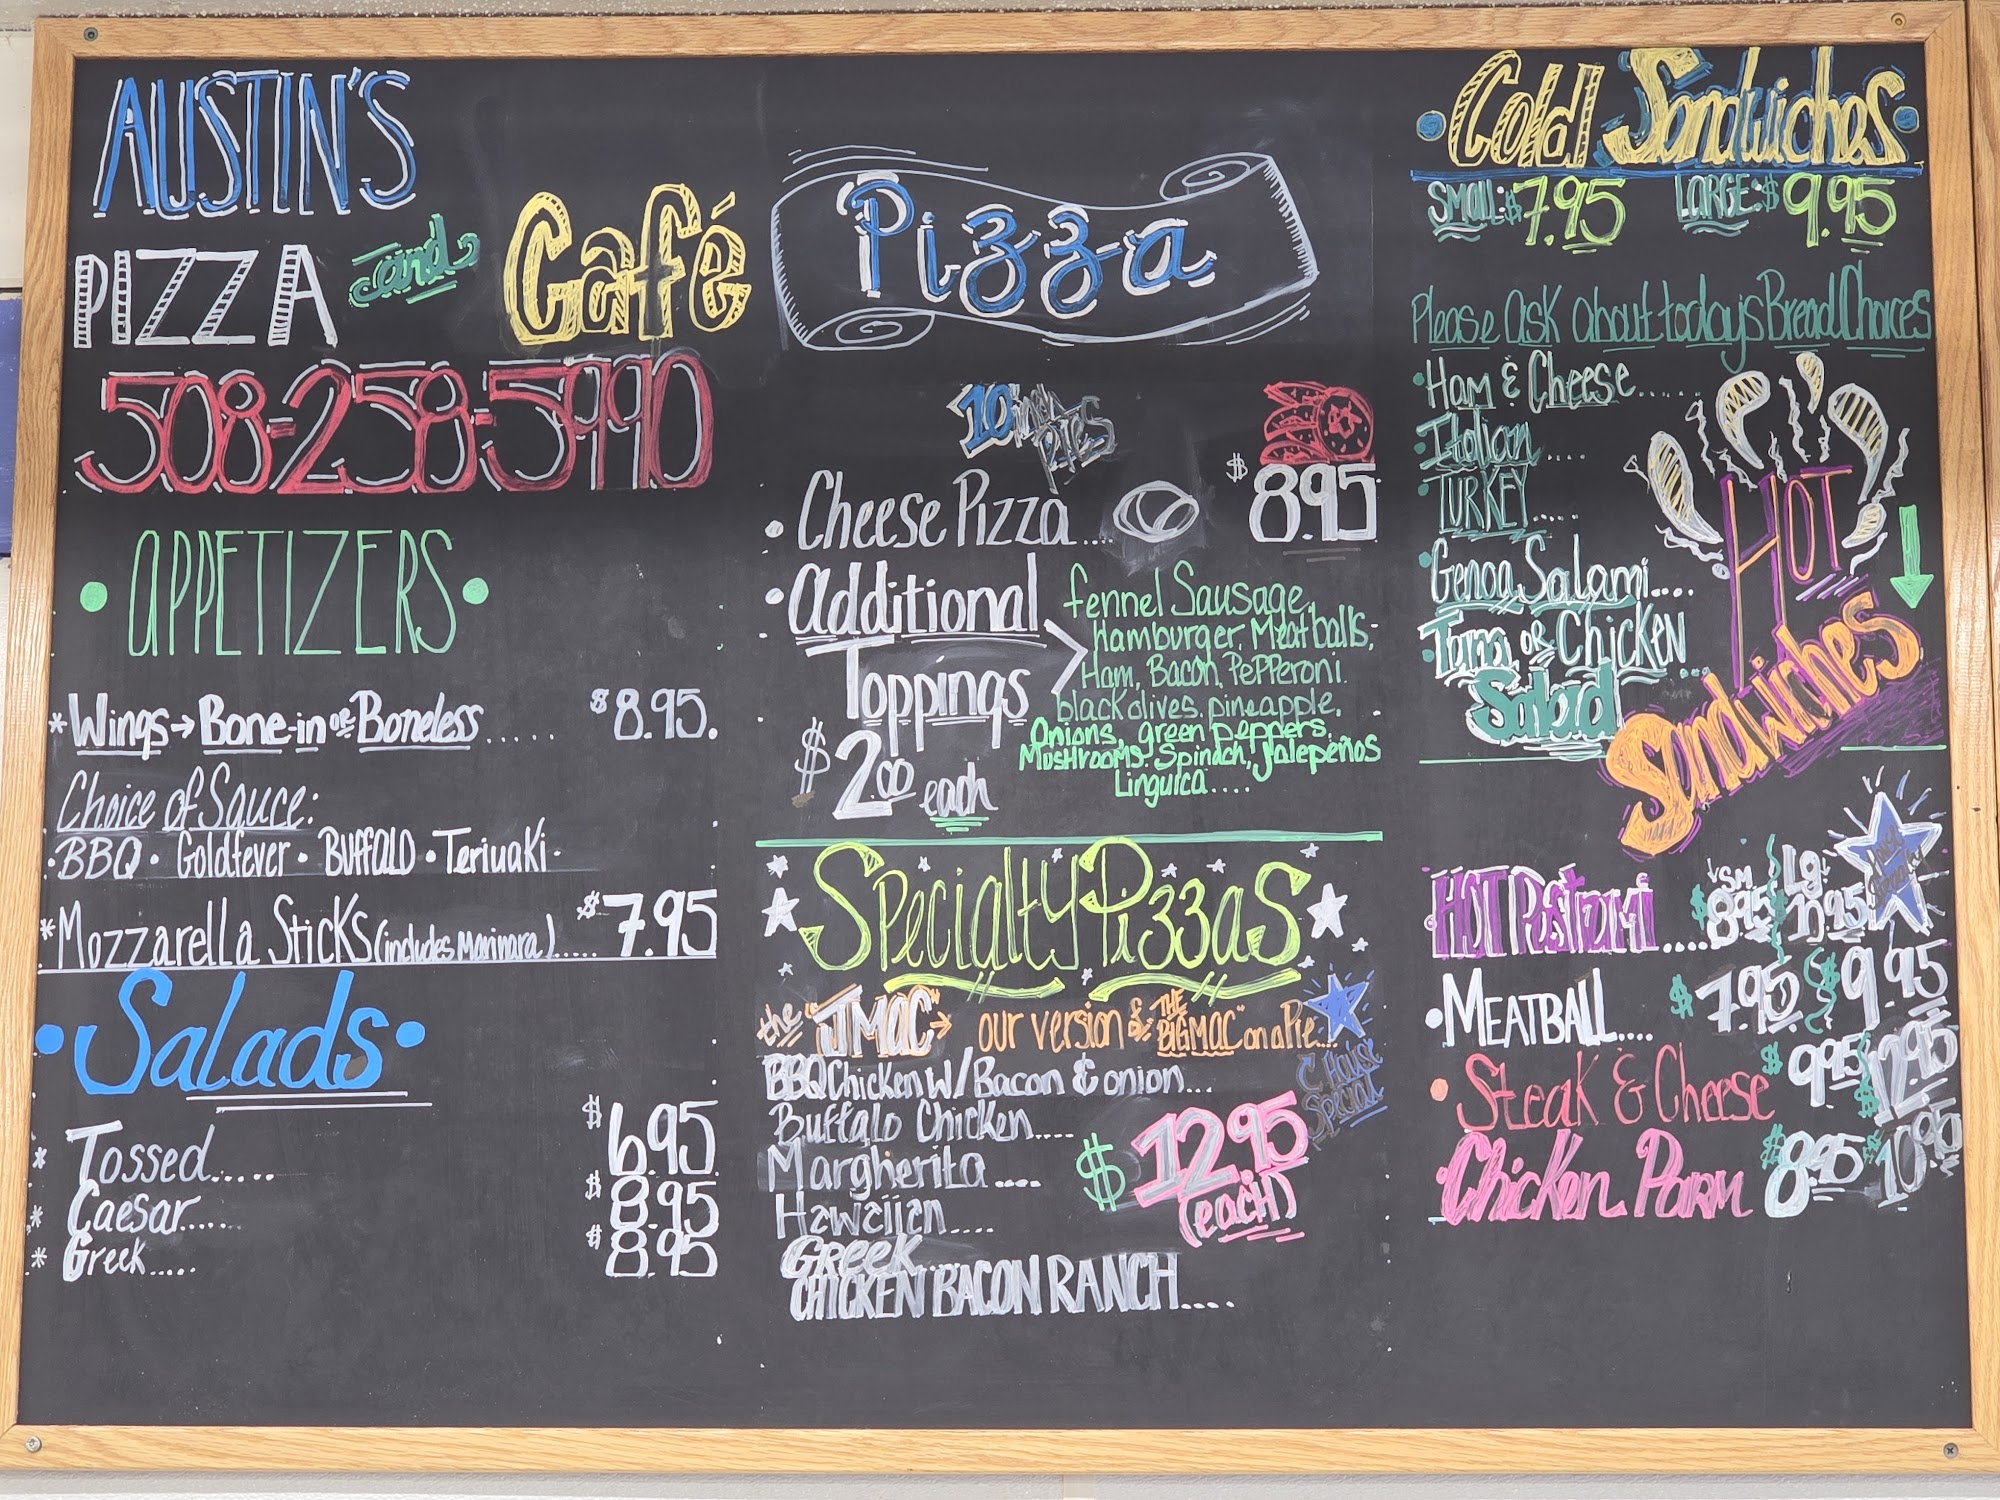 AUSTIN'S
PIZZA and Café
508-258-5990
• APPETIZERS •
* Wings → Bone-in or Boneless ...... $8.95.
Choice of Sauce:
• BBQ • Goldfever • BUFFALO • Teriyaki •
* Mozzarella Sticks (includes Marinara)..... $7.95
• Salads •
* Tossed..... $6.95
* Caesar..... $8.95
* Greek..... $8.95
Pizza
10 inch PIES
• Cheese Pizza... $8.95
• Additional Toppings
$2.00 each
fennel Sausage,
hamburger, Meatballs,
Ham, Bacon, Pepperoni.
black olives. pineapple.
Onions, green peppers,
Mushrooms. Spinach, jalepeños
Linguica....
Specialty Pizzas
the "JMAC" → our version of "THE BIGMAC" on a Pie...
House Special
BBQ Chicken w/ Bacon & onion...
Buffalo Chicken....
Margherita ....
Hawaiian....
Greek...
CHICKEN BACON RANCH....
$12.95
(each)
• Cold Sandwiches •
SMALL: $7.95 LARGE: $9.95
Please Ask about today's Bread Choices
• Ham & Cheese......
• Italian....
• TURKEY.....
• Genoa Salami....
• Tuna or Chicken ...
Salad
HOT
Sandwiches
SM LG
• HOT Pastrami..... $8.95 10.95
• MEATBALL.... $7.95 $9.95
• Steak & Cheese $9.95 $12.95
• Chicken Parm $8.95 $10.95